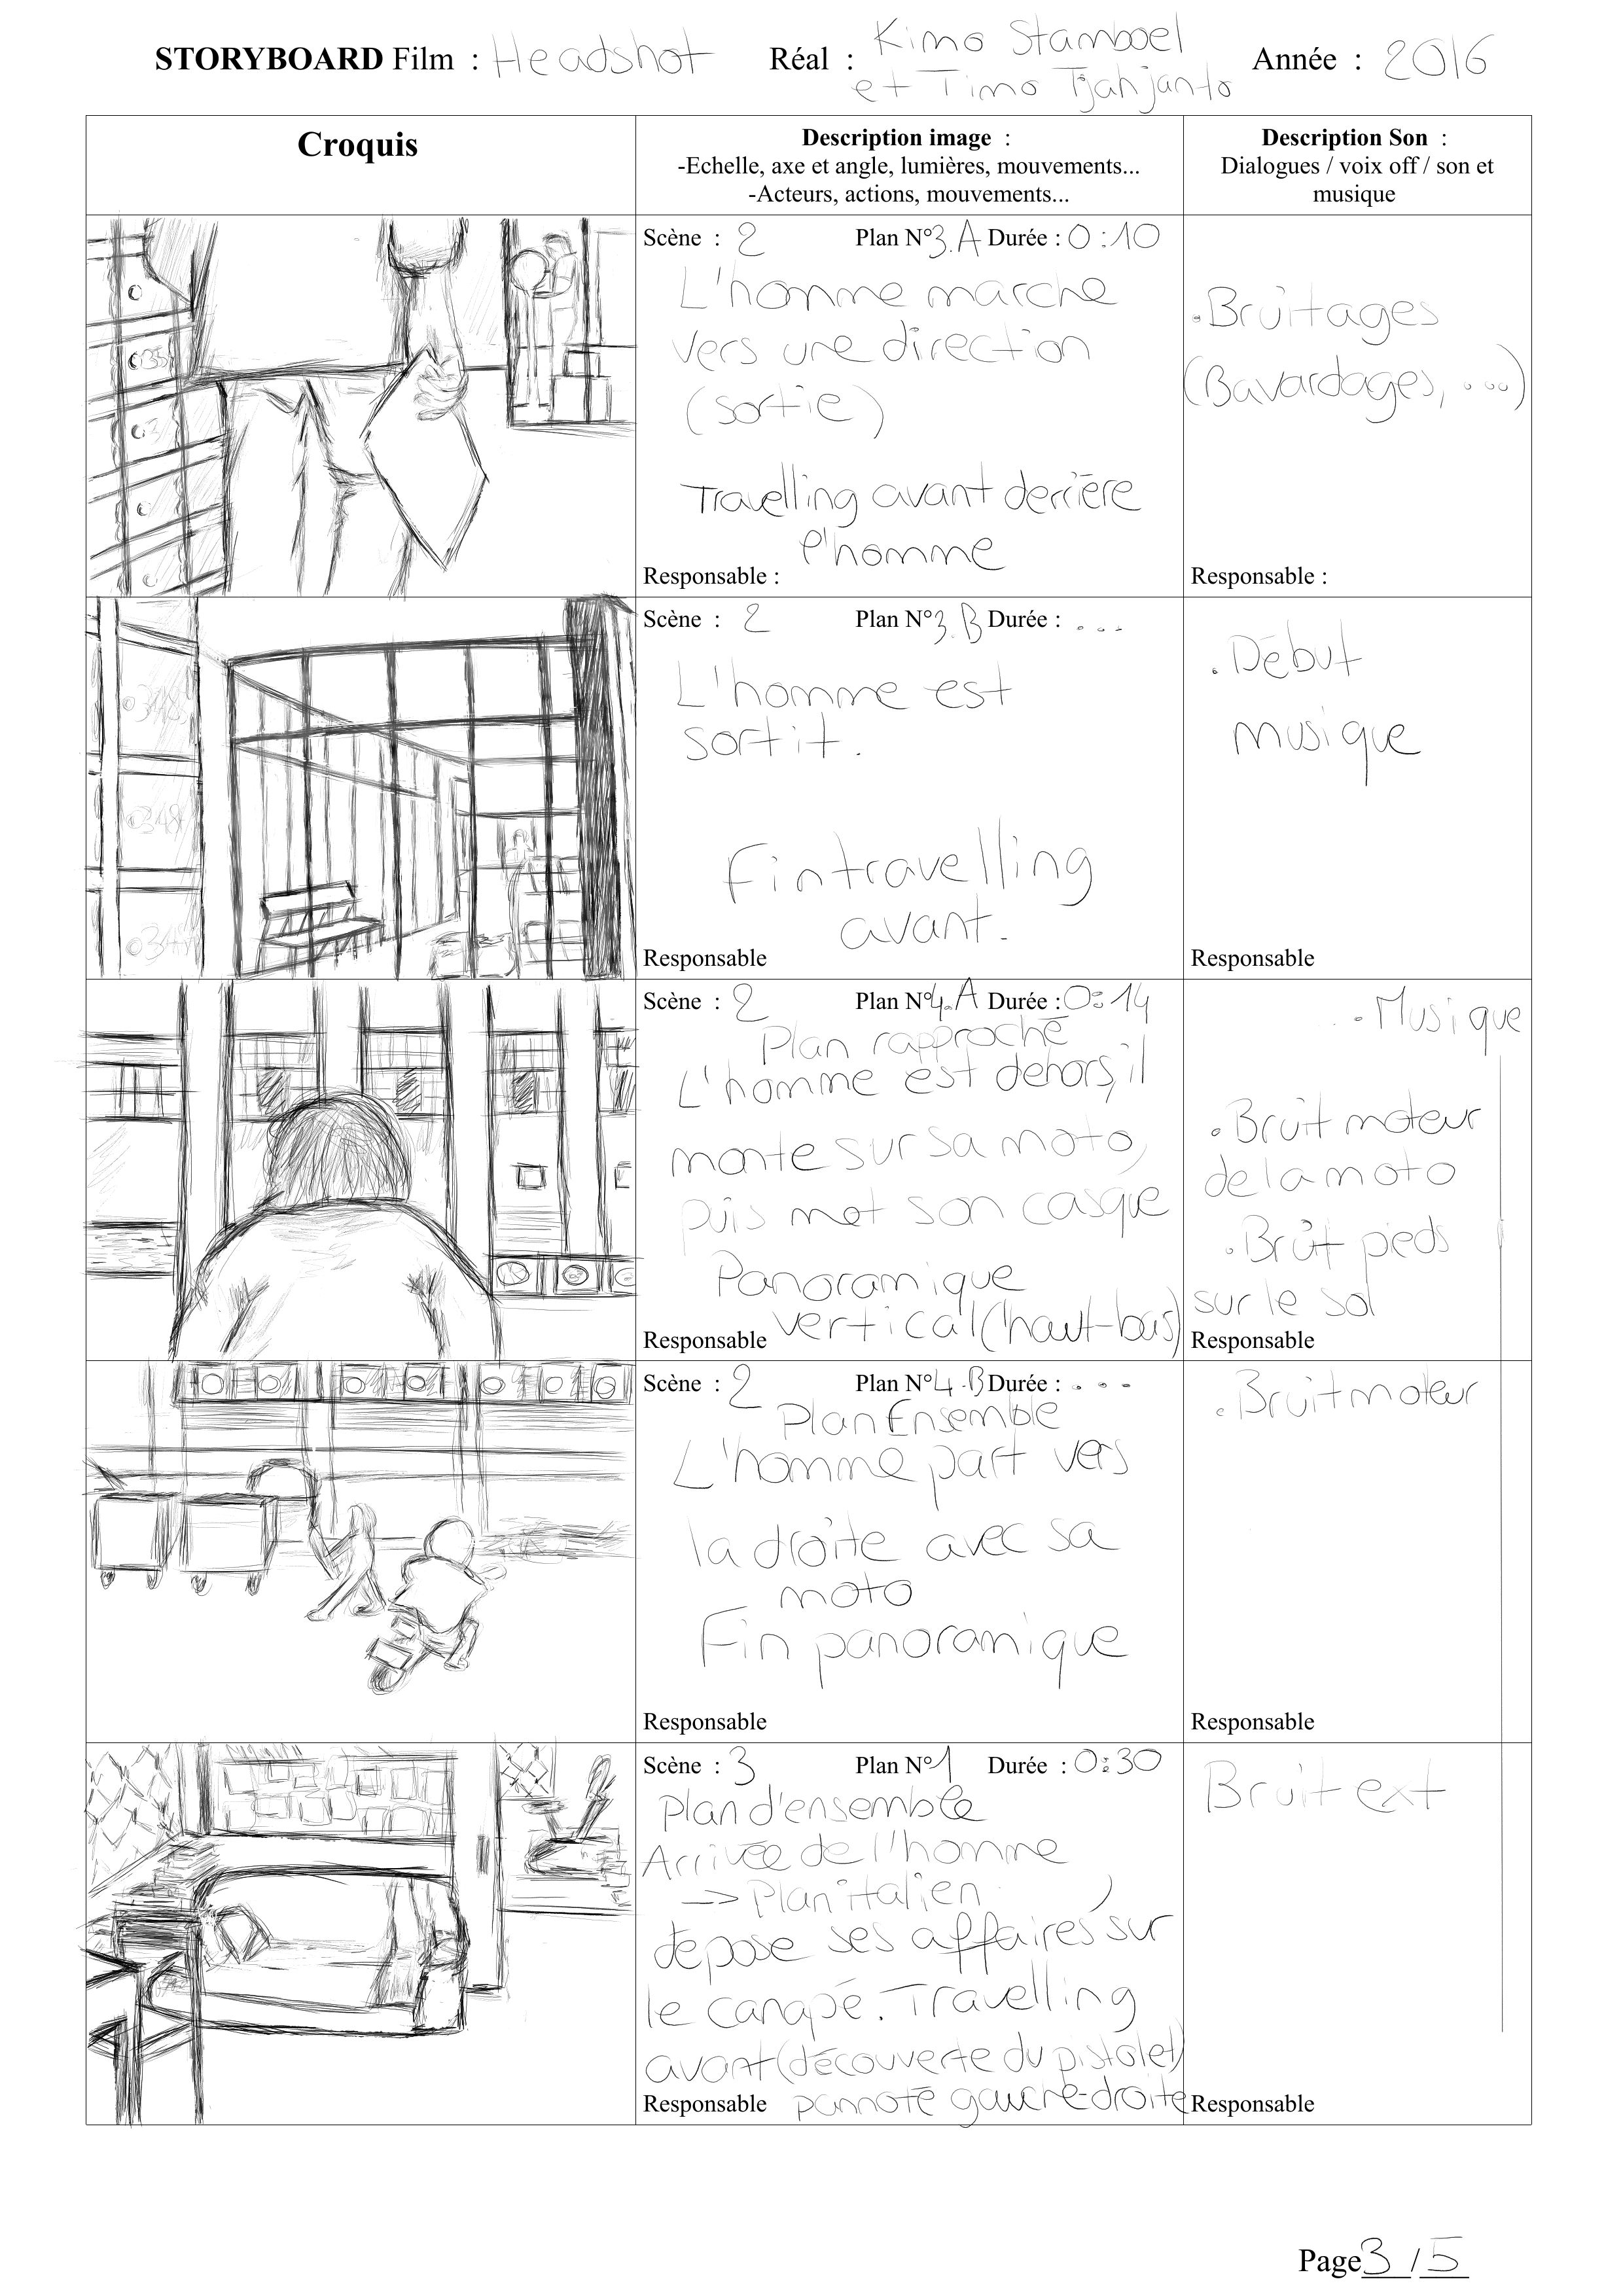 STORYBOARD Film : Headshot Réal : Kimo Stamboel Année : 2016
et Timo Tjahjanto
Croquis
Description image :
-Echelle, axe et angle, lumières, mouvements...
-Acteurs, actions, mouvements...
Description Son :
Dialogues / voix off / son et
musique
Scène : 2 Plan N°3.A Durée : 0:10
L'homme marche
vers une direction
(sortie)
Travelling avant derrière
l'homme
Responsable :
• Bruitages
(Bavardages, ...)
Responsable :
Scène : 2 Plan N°3.B Durée : ...
L'homme est
sortit.
Fin travelling
avant.
Responsable
. Début
musique
Responsable
348
348
Scène : 2 Plan N°4.A Durée : 0:14
Plan rapproché
L'homme est dehors, il
monte sur sa moto,
puis met son casque
Panoramique
vertical (haut-bas)
Responsable
• Musique
• Bruit moteur
de la moto
• Bruit pieds
sur le sol
Responsable
Scène : 2 Plan N°4.B Durée : ...
Plan Ensemble
L'homme part vers
la droite avec sa
moto
Fin panoramique
Responsable
• Bruit moteur
Responsable
Scène : 3 Plan N°1 Durée : 0:30
plan d'ensemble
Arrivée de l'homme
-> Plan italien
dépose ses affaires sur
le canapé. Travelling
avant (découverte du pistolet)
pannoté gauche-droite
Responsable
Bruit ext
Responsable
Page 3 / 5